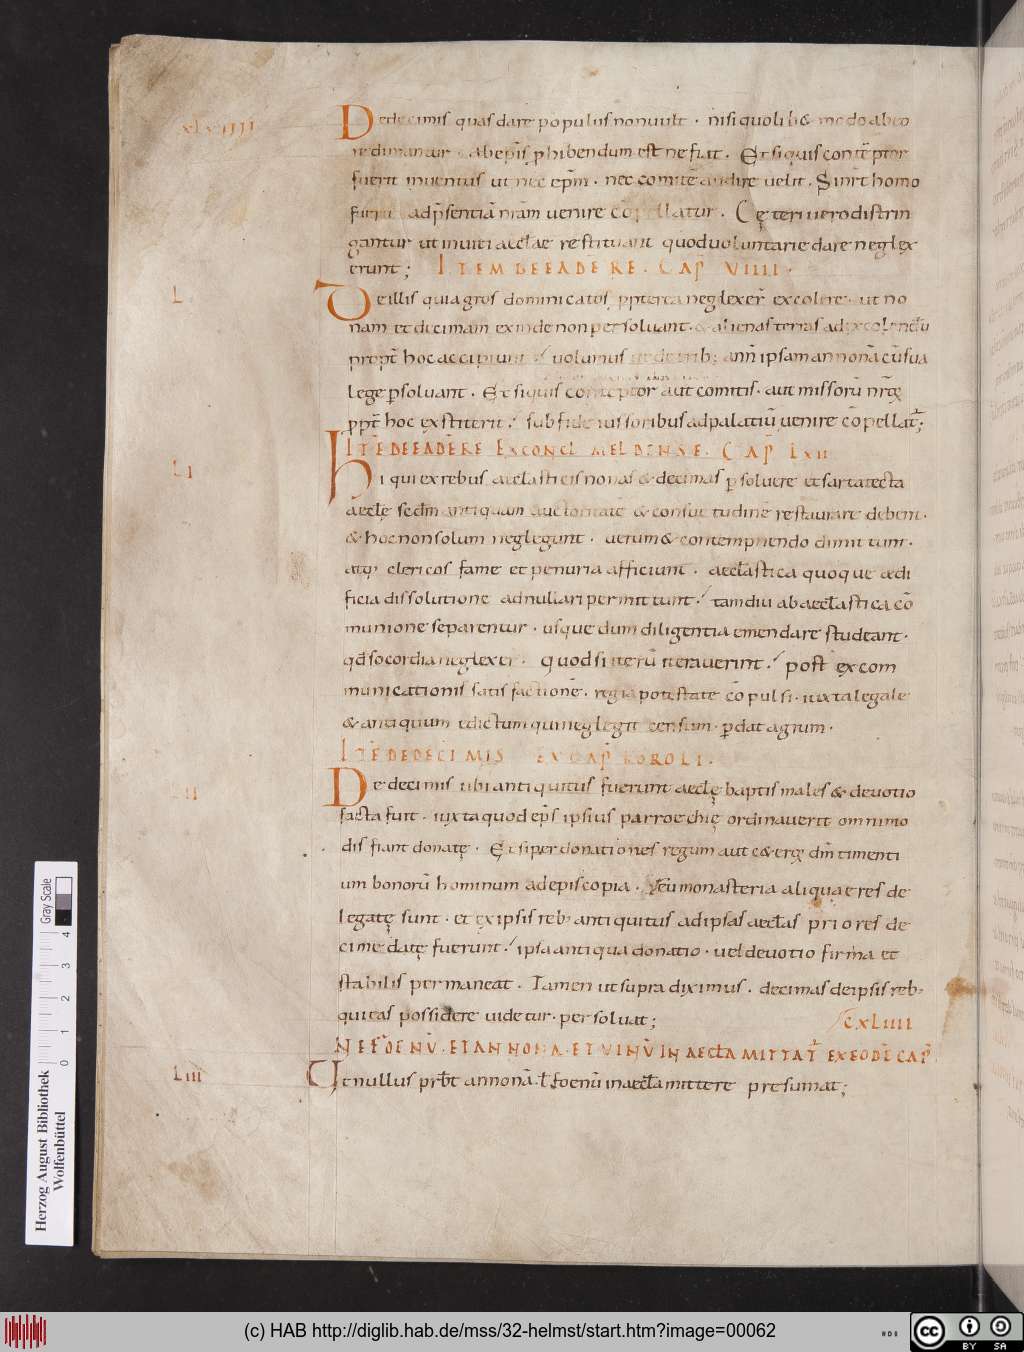 xlviiii
Dedecimis quas dare populus non vult · nisi quolib& modo ab eo
redimantur · ab ep̄is p̱hibendum est ne fiat. Et siquis contēptor
fuerit inventus ut nec ep̄m · nec comitē audire velit. Si nr̄t homo
fuerit ad p̄sentiā nr̄am venire cōpellatur. Cęteri vero distrin
gantur ut inviti aecl̄ae restituant quod voluntarie dare neglex
erunt; ITEM DE EADE RE. CAP̄ VIIII.
L
De illis qui agros dominicatos ꝓpterea neglexer̄ excolere · ut no
nam et decimam exinde non persolvant · & alienas terras ad excolendū
propt̄ hoc accipiunt volumus ut de trib; ann̄ ipsam annonā cū sua
lege ꝑsolvant. Et siquis contēptor aut comitis · aut missorū nr̄orū
ꝓpt̄ hoc exstiterit · sub fideiussoribus ad palatiū venire cōpellat̄;
ITĒ DE EADĒ RE EX CONCL̄ MELDENSE. CAP̄ LXII
LI
Hi qui ex rebus aecl̄asticis nonas & decimas ꝑsolvere et sartatecta
aecl̄ę secdm̄ antiquam auctoritatē & consuetudinē restaurare debent.
& hoc non solum neglegunt · verum & contempnendo dimittunt.
atq; clericos fame et penuria afficiunt · aecl̄astica quoque ædi
ficia dissolutione adnullari permittunt · tamdiu ab aecl̄astica cō
munione separentur · usque dum diligentia emendare studeant ·
qđ socordia neglexer̄ · quod si iterū iteraverint · post excom
municationis satisfactionē · regia potestate cōpulsi · iuxta legale
& antiquum edictum qui neglegit censum · ꝑdat agrum ·
ITĒ DE DECIMIS EX CAP̄ KOROLI.
LII
De decimis ubi antiquitus fuerunt aecl̄ę baptismales & devotio
facta fuit · iuxta quod ep̄s ipsius parroechię ordinaverit omnimo
dis fiant donatę · Et si per donationes regum aut c&erorū dm̄ timenti
um bonorū hominum ad episcopia · seu monasteria aliquae res de
legatę sunt · et ex ipsis reb; antiquitus ad ipsas aecl̄as priores de
cime datę fuerunt · ipsa antiqua donatio · vel devotio firma et
stabilis permaneat. Tamen ut supra diximus · decimas de ipsis reb;
qui eas possidere videtur · persolvat; CXLIIII
NE FOENŪ · ET ANNONA · ET VINŪ IN AECL̄A MITTAT̄ EX EODĒ CAP̄.
LIII
Ut nullus prb̄t annonā · ł foenū in aecl̄a mittere presumat;
Herzog August Bibliothek
Wolfenbüttel
0 1 2 3 4
Gray Scale
(c) HAB http://diglib.hab.de/mss/32-helmst/start.htm?image=00062
cc BY SA